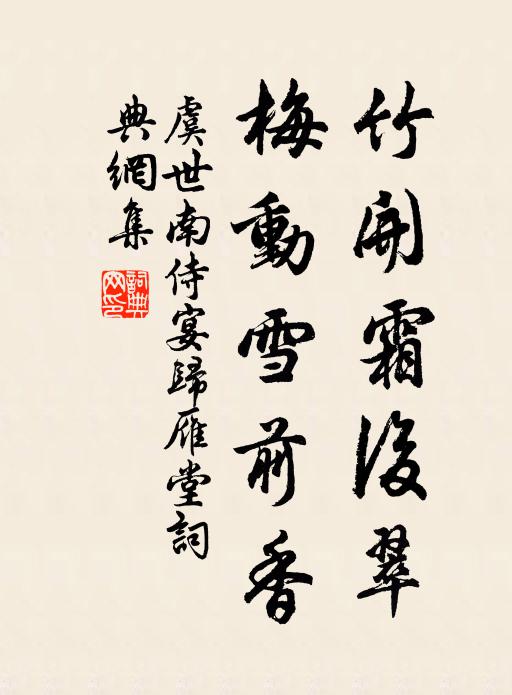 竹開霜後翠
梅動雪前香
虞世南侍宴歸雁堂詞
典網集
詞典網印